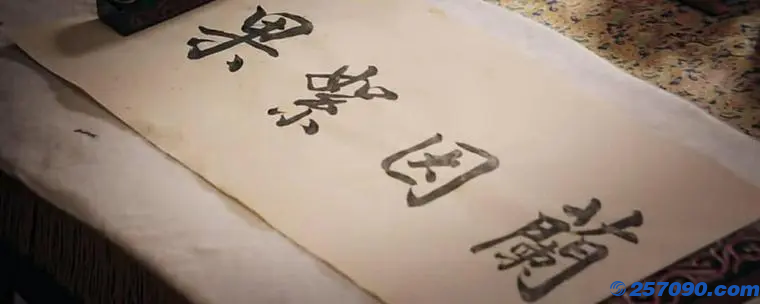 蘭因絮果
257090.com